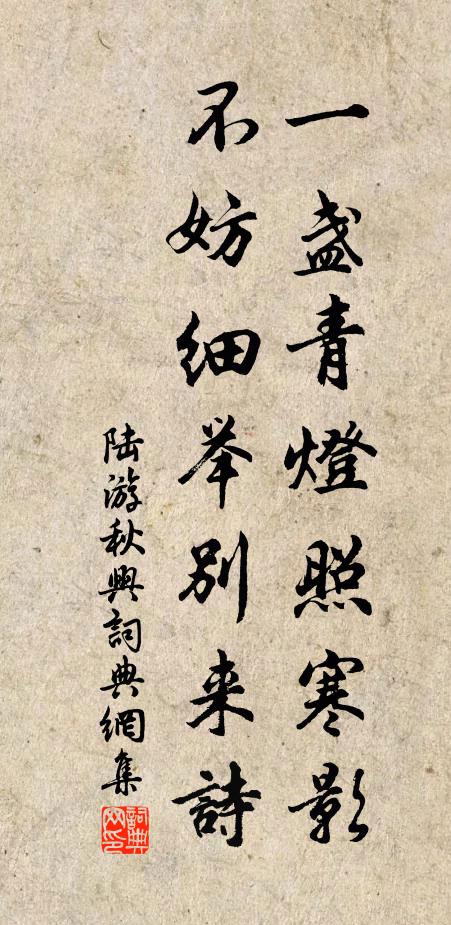 一盏青燈照寒影
不妨细举别来詩
陆游秋興詞典網集
詞典网印